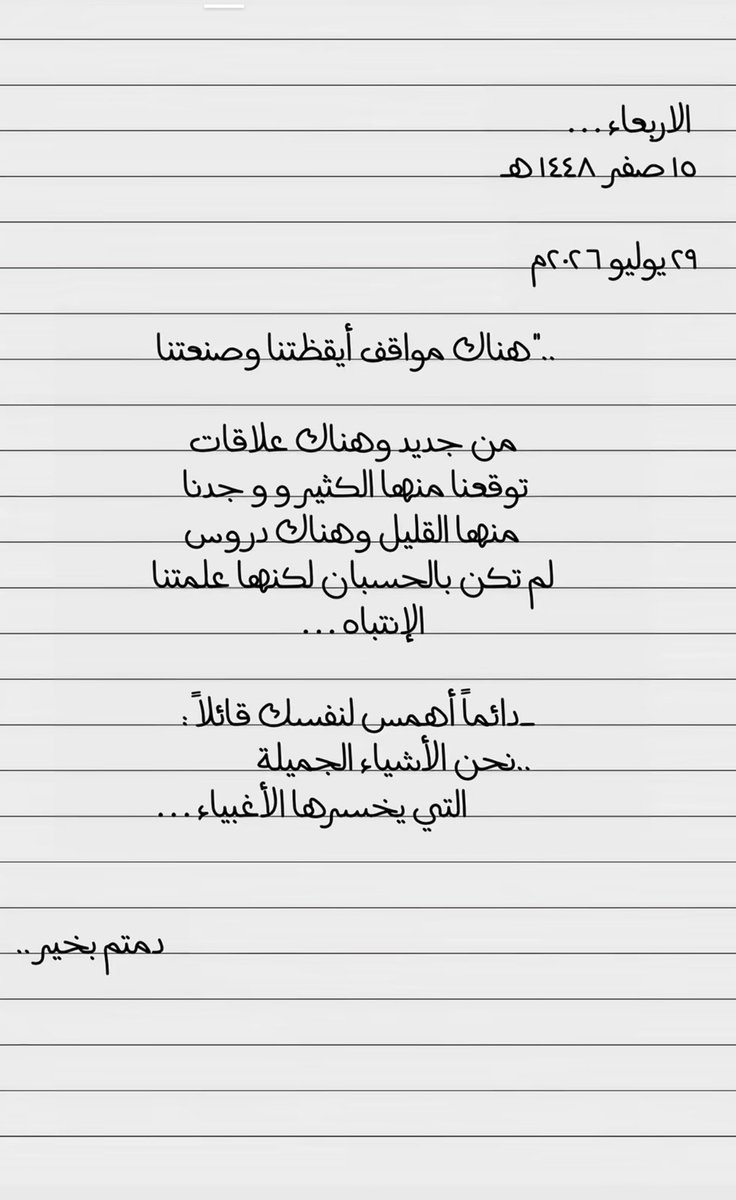 الاربعاء...
١٥ صفر ١٤٤٨ هـ
٢٩ يوليو ٢٠٢٦م
.."هناك مواقف أيقظتنا وصنعتنا
من جديد وهناك علاقات
توقعنا منها الكثير و و جدنا
منها القليل وهناك دروس
لم تكن بالحسبان لكنها علمتنا
الإنتباه...
_دائماً أهمس لنفسك قائلاً :
..نحن الأشياء الجميلة
التي يخسرها الأغبياء...
دمتم بخير..